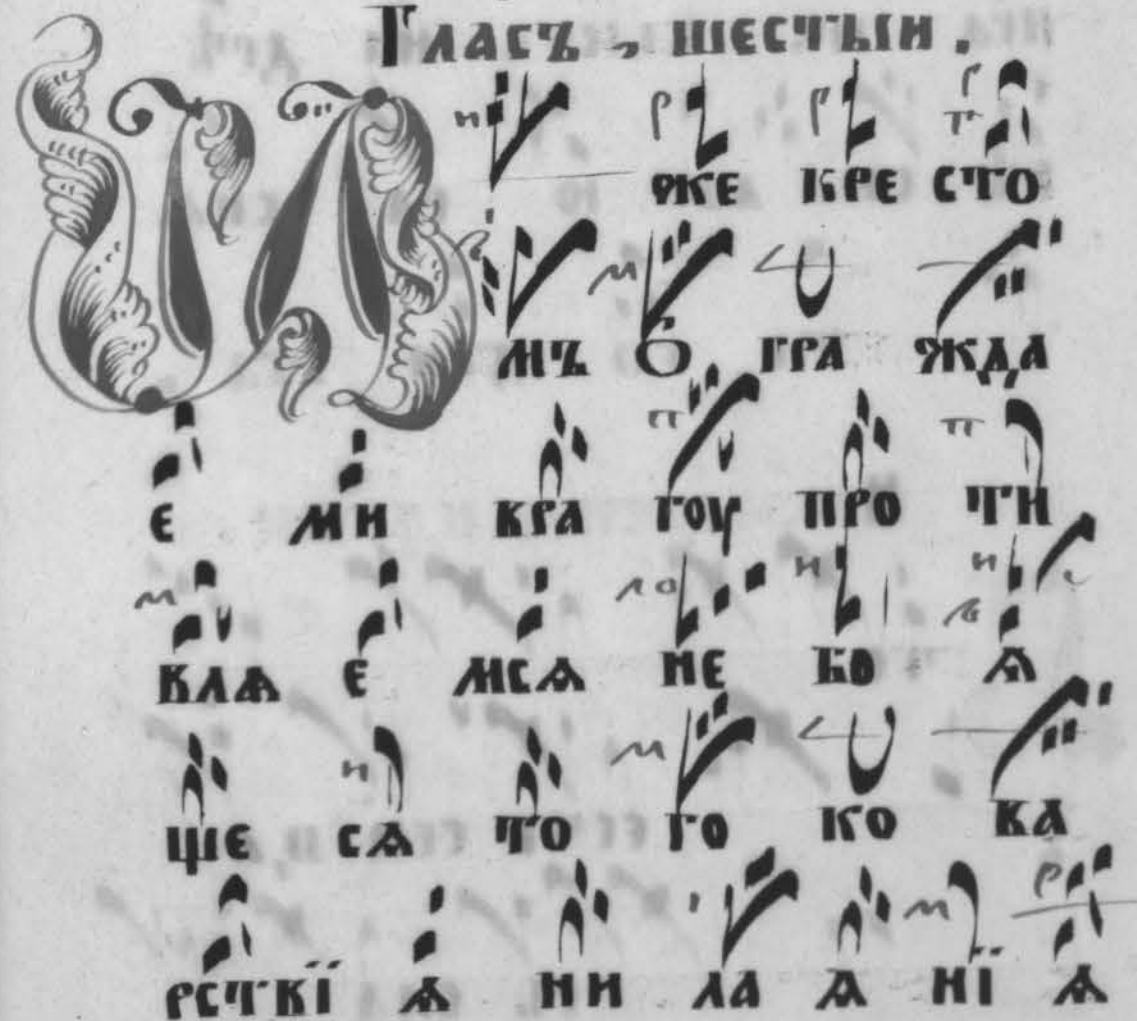 Гласъ , шестыи .
И же кре сто
мъ о гра жда
е ми вра гоу про ти
влѧ е мсѧ не бо ѧ
ще сѧ то го ко ва
рствї ѧ ни ла ѧ нї ѧ